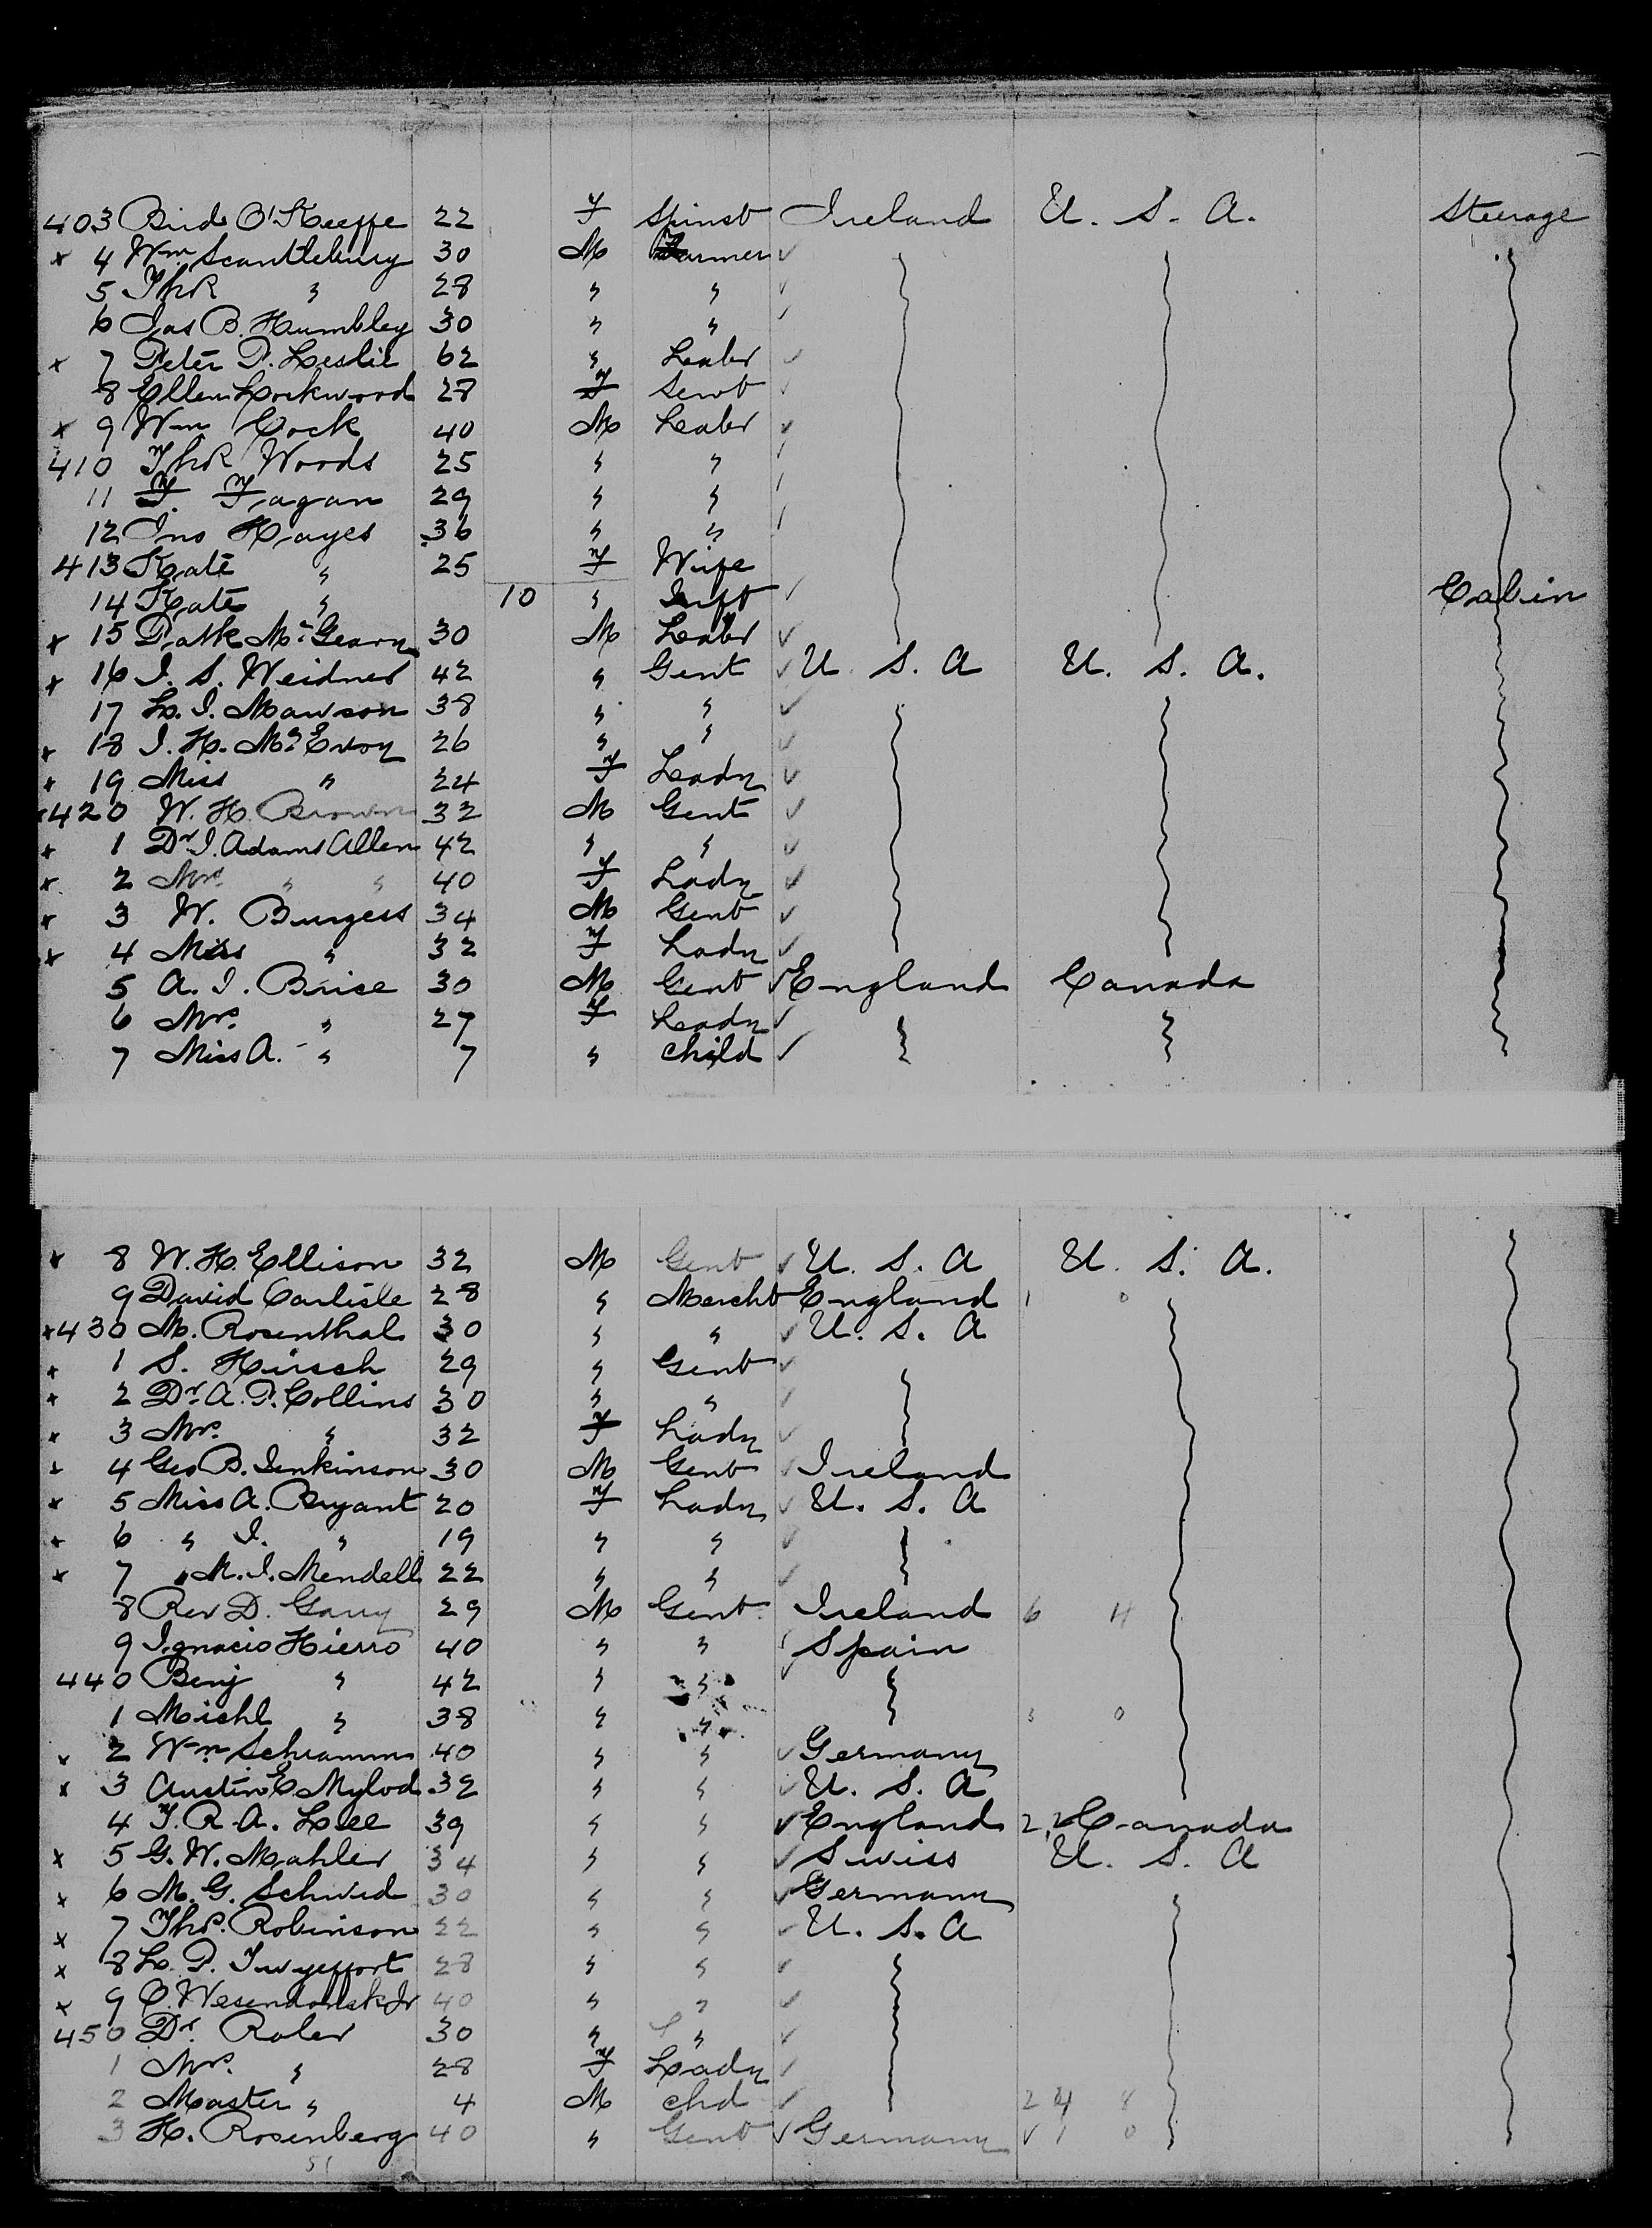 403 Brid O'Keeffe 22 F Spinst Ireland U. S. A. Steerage
x 4 Wm Scantlebury 30 M Farmer ✓
5 Thos " 28 " " ✓
6 Jas B. Humbley 30 " " ✓
x 7 Peter P. Leslie 62 " Labr ✓
8 Ellen Lockwood 28 F Servt ✓
x 9 Wm Cock 40 M Labr ✓
410 Thos Woods 25 " " ✓
11 F. Fagan 29 " " ✓
12 Jno Hayes 36 " " ✓
413 Kate " 25 F Wife
14 Kate " 10 " Inft ✓ Cabin
x 15 Patk McGearn 30 M Labr ✓
x 16 J. S. Weidner 42 " Gent ✓ U. S. A U. S. A.
17 L. J. Mawson 38 " " ✓
x 18 J. H. McEvoy 26 " " ✓
x 19 Miss " 24 F Lady ✓
x 420 W. H. Brown 32 M Gent ✓
x 1 Dr J. Adams Allen 42 " " ✓
x 2 Mrs " " 40 F Lady ✓
x 3 W. Burgess 34 M Gent ✓
x 4 Miss " 32 F Lady ✓
5 A. J. Brise 30 M Gent ✓ England Canada
6 Mrs. " 27 F Lady ✓
7 Miss A. " 7 " child ✓
x 8 W. H. Ellison 32 M Gent ✓ U. S. A U. S. A.
9 David Carlisle 28 " Mercht England 1 0
x 430 M. Rosenthal 30 " " ✓ U. S. A
x 1 S. Hirsch 29 " Gent ✓
x 2 Dr A. P. Collins 30 " " ✓
x 3 Mrs. " 32 F Lady ✓
x 4 Geo B. Jenkinson 30 M Gent ✓ Ireland
x 5 Miss A. Bryant 20 F Lady ✓ U. S. A
x 6 " J. " 19 " " ✓
x 7 " M. J. Mendell 22 " " ✓
8 Rev D. Garry 29 M Gent Ireland 6 4
9 Ignacio Hierro 40 " " Spain
440 Benj " 42 " "
1 Michl " 38 " " 3 0
x 2 Wm Schramm 40 " " ✓ Germany
x 3 Austin E Mylod 32 " " ✓ U. S. A
4 T. R. A. Lee 39 " " ✓ England 2, 2 Canada
x 5 G. W. Mahler 34 " " ✓ Swiss U. S. A
x 6 M. G. Schwed 30 " " ✓ Germany
x 7 Thos. Robinson 22 " " ✓ U. S. A
x 8 L. P. Twyeffort 28 " " ✓
x 9 O. Wesendonsk Jr 40 " " ✓
450 Dr. Roler 30 " " ✓
1 Mrs. " 28 F Lady ✓
2 Master " 4 M chd ✓ 24 8
3 H. Rosenberg 40 " Gent ✓ Germany ✓ 1 0
51